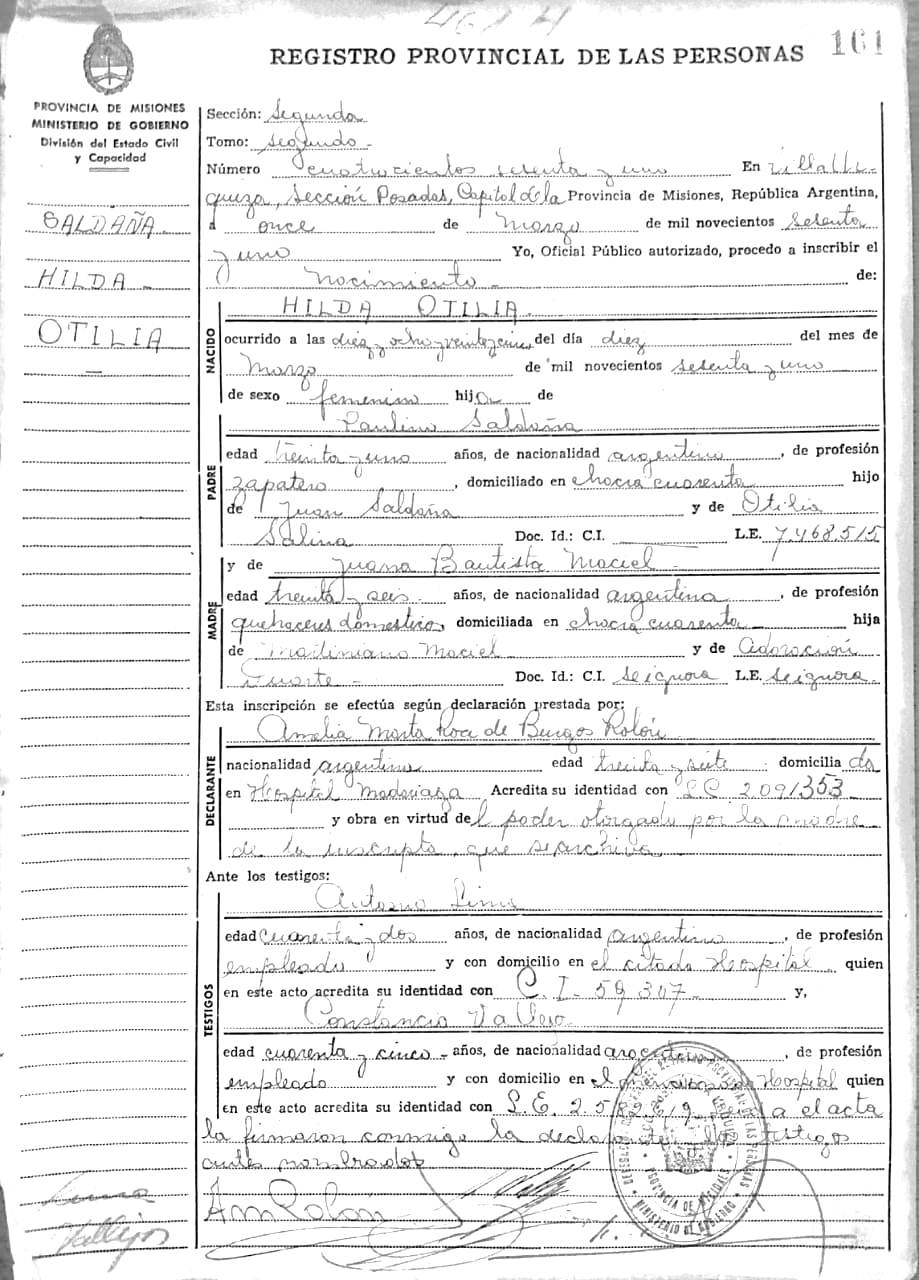 461 H
REGISTRO PROVINCIAL DE LAS PERSONAS
161
PROVINCIA DE MISIONES
MINISTERIO DE GOBIERNO
División del Estado Civil
y Capacidad
SALDAÑA
HILDA -
OTILIA
Sección: Segunda
Tomo: segundo -
Número cuatrocientos sesenta y uno En Villa Ur-
quiza, Sección Posadas, Capital de la Provincia de Misiones, República Argentina,
a once de Marzo de mil novecientos setenta
y uno Yo, Oficial Público autorizado, procedo a inscribir el
nacimiento de:
NACIDO
HILDA OTILIA.
ocurrido a las diez y ocho y veinte y cinco del día diez del mes de
Marzo de mil novecientos setenta y uno
de sexo femenino hija de
PADRE
Paulino Saldaña
edad treinta y uno años, de nacionalidad argentino, de profesión
zapatero, domiciliado en chacra cuarenta hijo
de Juan Saldaña y de Otilia
Salina Doc. Id.: C.I. L.E. 7.468.515
MADRE
y de Juana Bautista Maciel -
edad treinta y seis. años, de nacionalidad argentina, de profesión
quehaceres domestico, domiciliada en chacra cuarenta hija
de Martiniano Maciel y de Adoración
Duarte - Doc. Id.: C.I. Se ignora L.E. se ignora.
Esta inscripción se efectúa según declaración prestada por:
DECLARANTE
Amelia Marta Roa de Burgos Rolón
nacionalidad argentina edad treinta y siete domicilia da
en Hospital Madariaga Acredita su identidad con L.C. 2.091353
y obra en virtud del poder otorgado por la madre
de la inscripta, que se archiva
Ante los testigos:
TESTIGOS
Antonio
edad cuarenta y dos años, de nacionalidad argentino, de profesión
empleado y con domicilio en el citado Hospital quien
en este acto acredita su identidad con C. I. 59 347. y,
Constancio Vallejo.
edad cuarenta y cinco - años, de nacionalidad argentino, de profesión
empleado y con domicilio en el mencionado Hospital quien
en este acto acredita su identidad con L.E. 2.5 a el acta
la firmaron conmigo la declarante y los testigos
antes nombrados
AmRolón
Vallejos
PROVINCIA DE MISIONES
MINISTERIO DE GOBIERNO